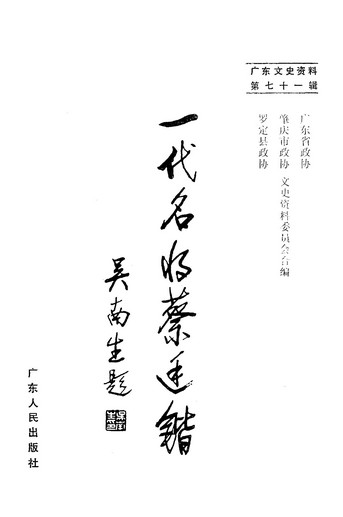 广东文史资料
第七十一辑
广东省政协
肇庆市政协 文史资料委员会合编
罗定县政协
一代名将蔡廷锴
吴南生题
广东人民出版社